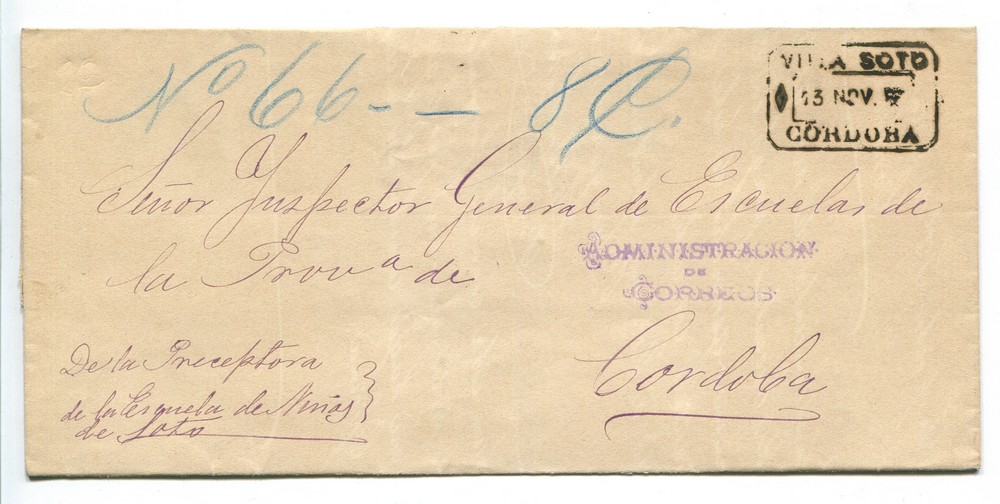 Nº 66 - — 8 C.
VILLA SOTO
13 NOV.
CÓRDOBA
Señor Inspector General de Escuelas de
la Provª de
ADMINISTRACION
DE
CORREOS
Cordoba
De la Preceptora
de la Escuela de Niñas
de Soto